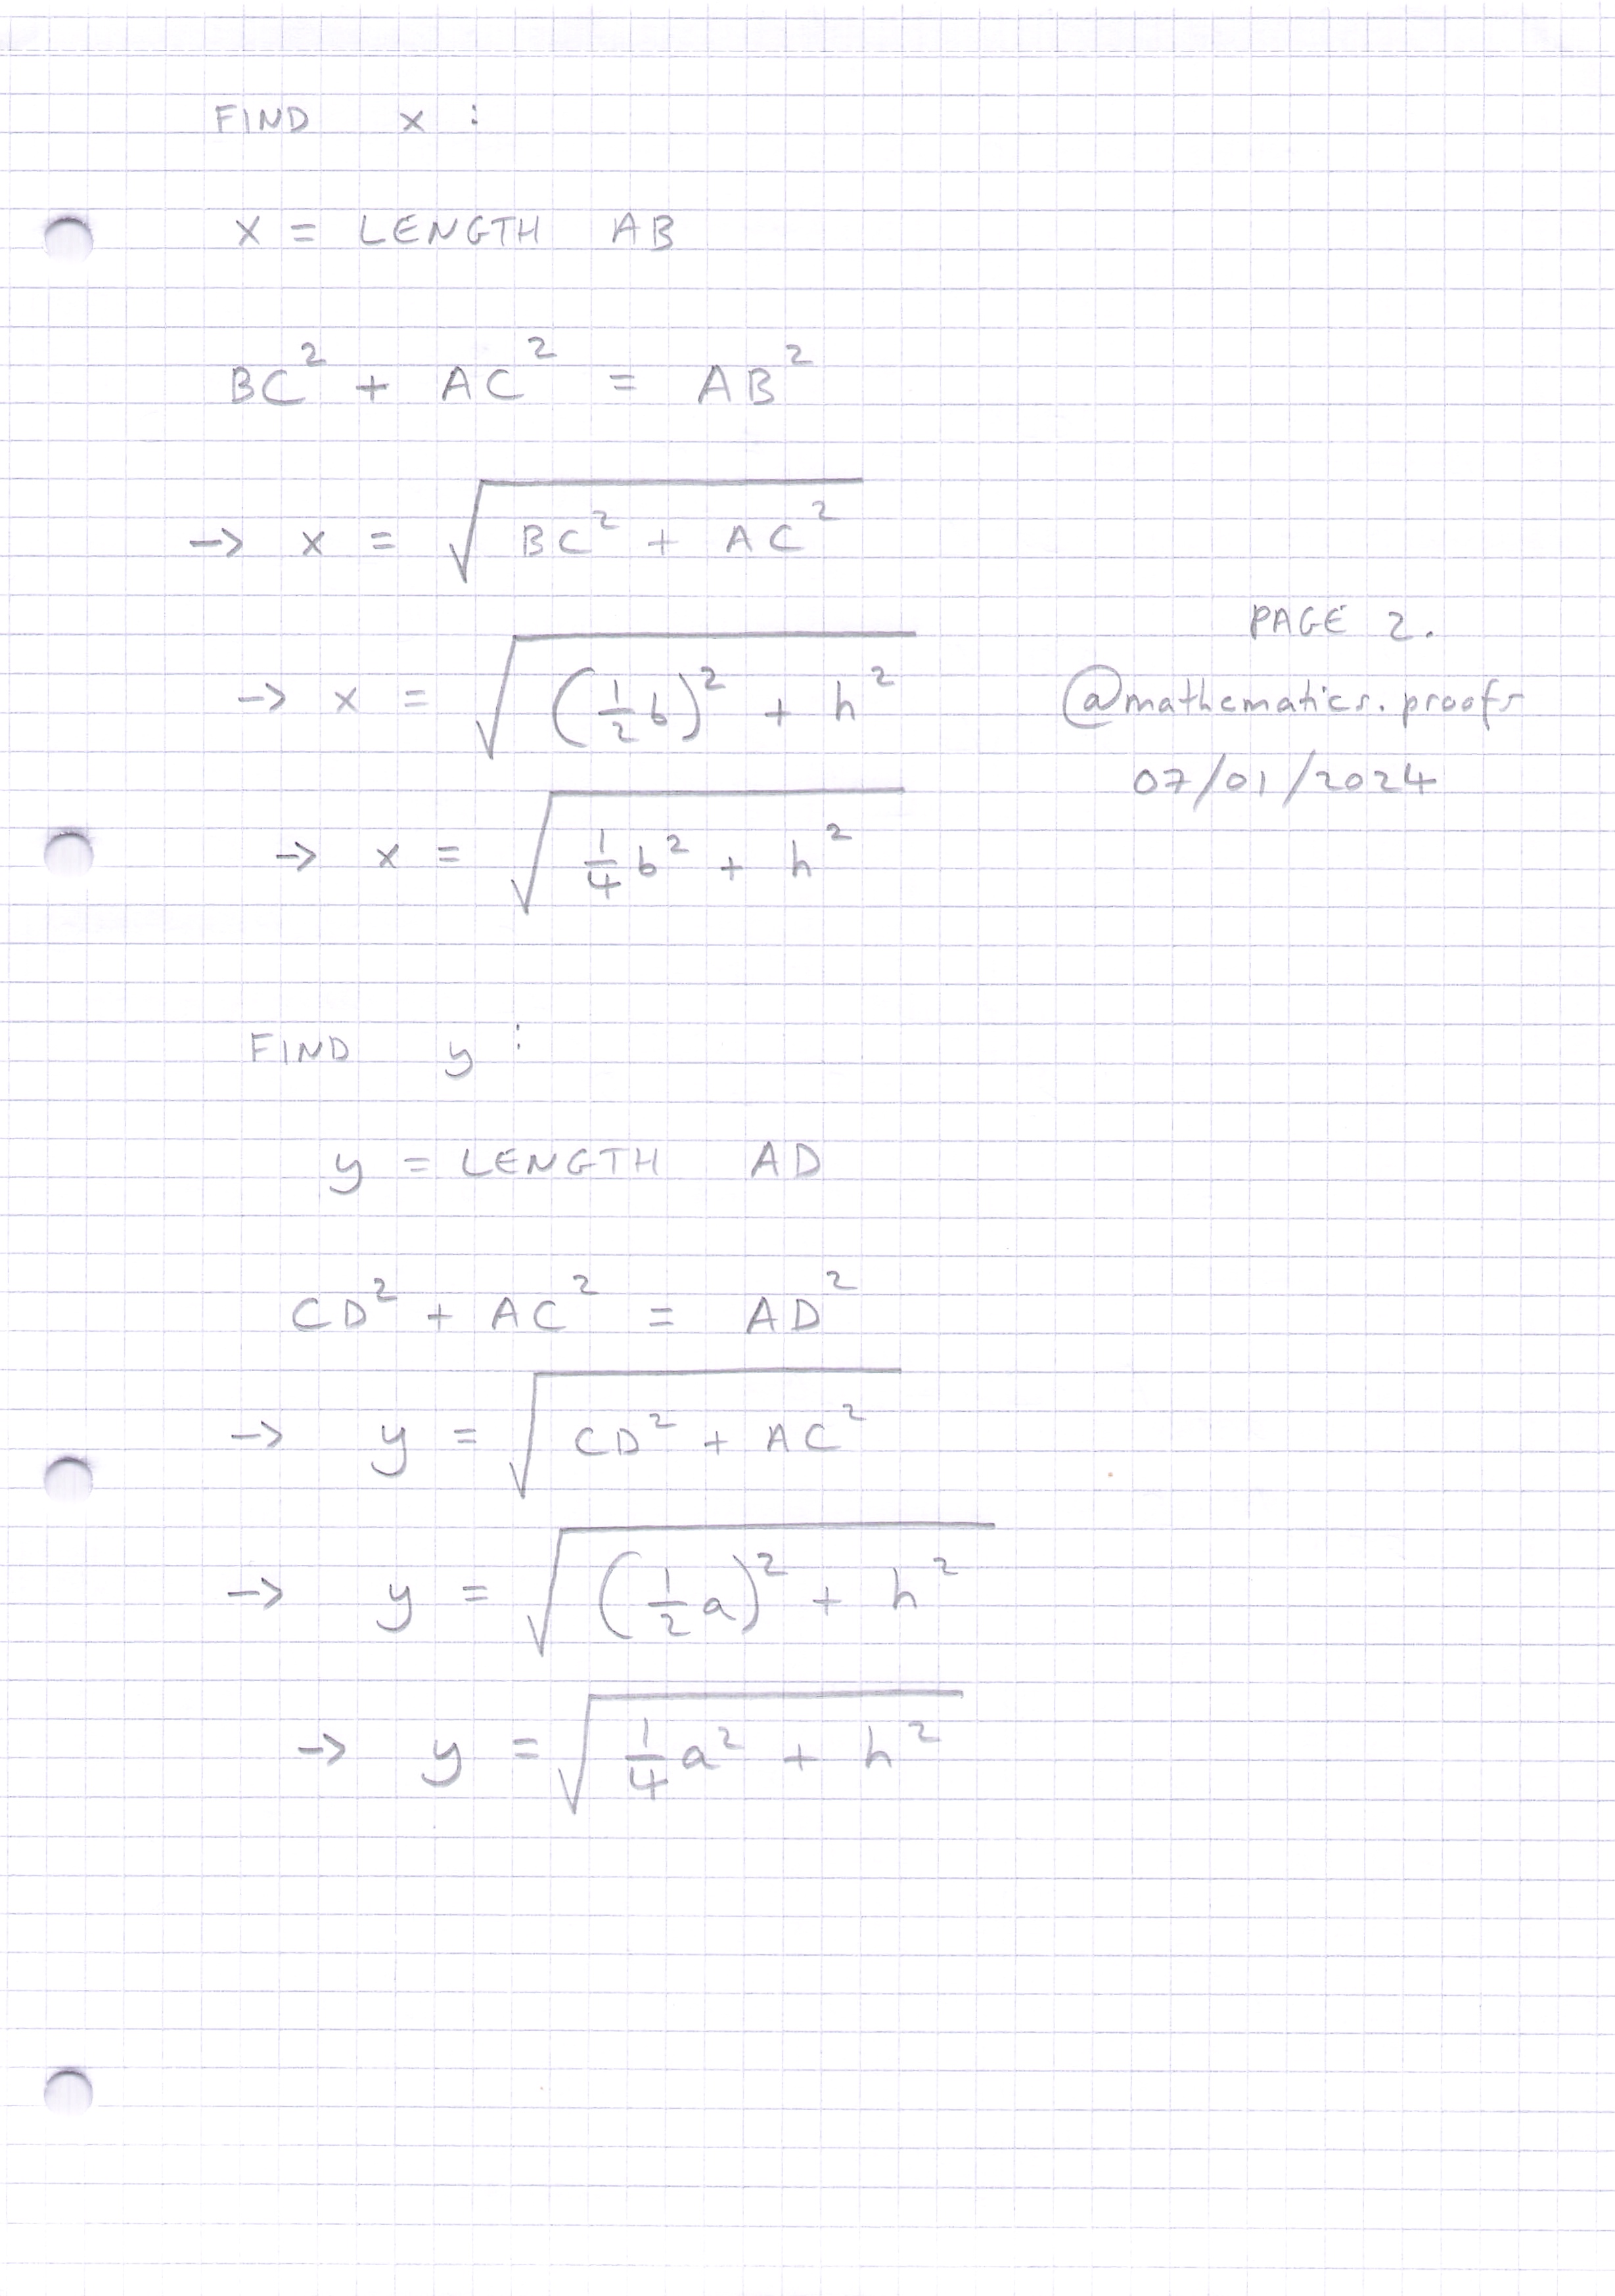 FIND x :
x = LENGTH AB
BC² + AC² = AB²
-> x = √(BC² + AC²)
PAGE 2.
-> x = √((1/2 b)² + h²)
@mathematics.proofs
07/01/2024
-> x = √(1/4 b² + h²)
FIND y :
y = LENGTH AD
CD² + AC² = AD²
-> y = √(CD² + AC²)
-> y = √((1/2 a)² + h²)
-> y = √(1/4 a² + h²)